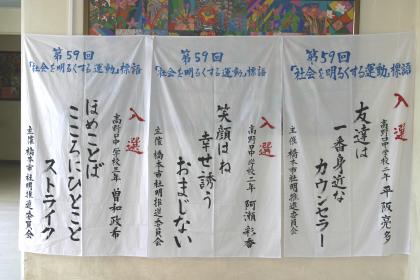 第59回
「社会を明るくする運動」標語
入選
高野口中学校二年 平阪亮多
友達は
一番身近な
カウンセラー
主催 橋本市社明推進委員会
第59回
「社会を明るくする運動」標語
入選
高野口中学校二年 阿瀬彩香
笑顔はね
幸せ誘う
おまじない
主催 橋本市社明推進委員会
第59回
「社会を明るくする運動」標語
入選
高野口中学校三年 曽和政希
ほめことば
こころにひとこと
ストライク
主催 橋本市社明推進委員会